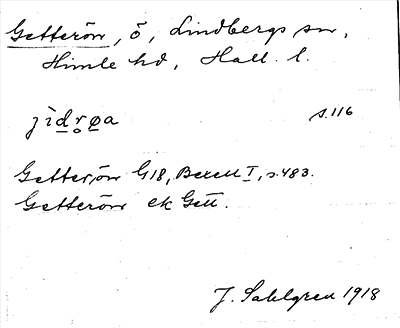 Getterön, ö, Lindbergs sn,
Himle hd, Hall. l.
jìdr̥øa s. 116
Getterön G18, Beretn I, s. 483.
Getterön ek Gen.
J. Sahlgren 1918